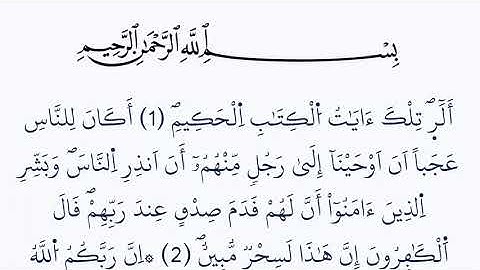 بِسْمِ اِ۬للَّهِ اِ۬لرَّحْمَٰنِ اِ۬لرَّحِيمِ
أَلَٓر۪ۖ تِلْكَ ءَايَٰتُ اُ۬لْكِتَٰبِ اِ۬لْحَكِيمِۖ (1) أَكَانَ لِلنَّاسِ
عَجَباً اَنَ اَوْحَيْنَآ إِلَىٰ رَجُلٖ مِّنْهُمُۥٓ أَنَ اَنذِرِ اِ۬لنَّاسَۖ وَبَشِّرِ
اِ۬لذِينَ ءَامَنُوٓاْ أَنَّ لَهُمْ قَدَمَ صِدْقٍ عِندَ رَبِّهِمْۖ قَالَ
اَ۬لْكَٰفِرُونَ إِنَّ هَٰذَا لَسِحْرٞ مُّبِينٌۖ (2) ۞اِنَّ رَبَّكُمُ اُ۬للَّهُ